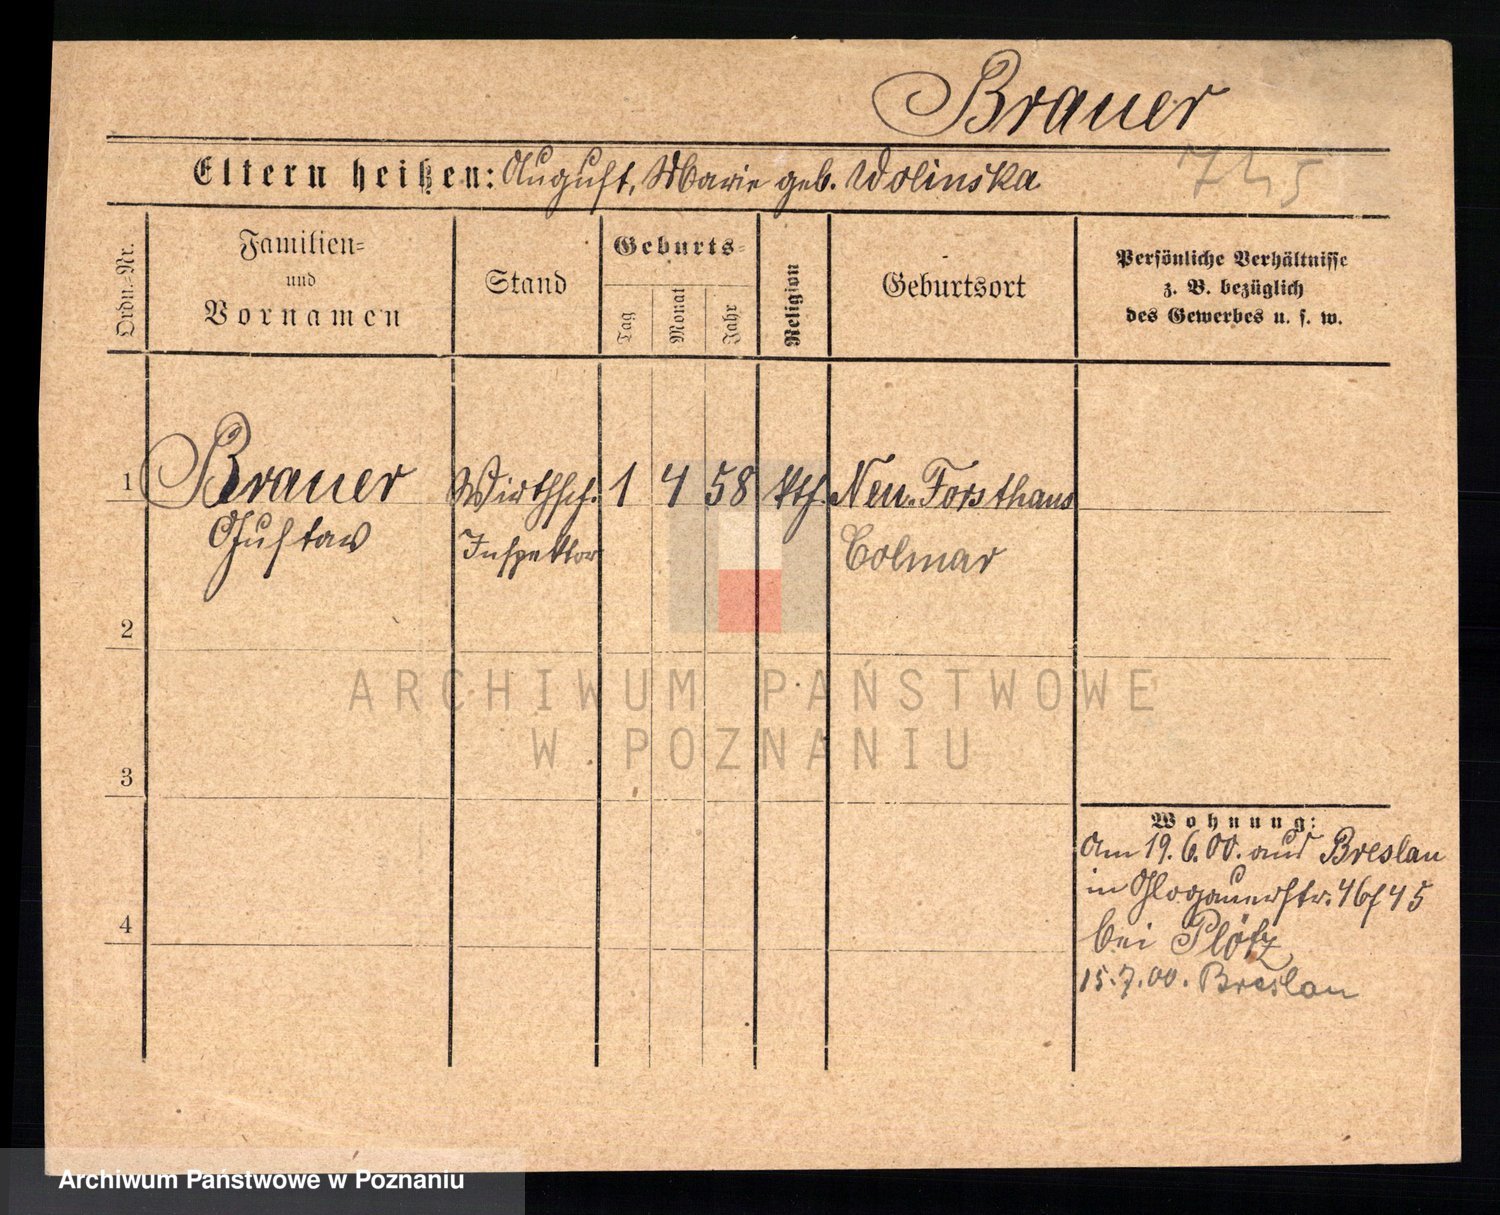 Brauer
Eltern heißen: August, Marie geb. Wolinska
Ordn.-Nr.
Familien-
und
Vornamen
Stand
Geburts-
Tag
Monat
Jahr
Religion
Geburtsort
Persönliche Verhältnisse
z. B. bezüglich
des Gewerbes u. s. w.
1 Brauer Wirthsch. 1 4 58 kth. Neu-Forsthaus
Gustav Inspektor Colmar
2
3
4
Wohnung:
Am 19.6.00. aus Breslau
in Glogauerstr. 46/45
bei Plötz
15.7.00. Breslau
ARCHIWUM PAŃSTWOWE
W POZNANIU
Archiwum Państwowe w Poznaniu